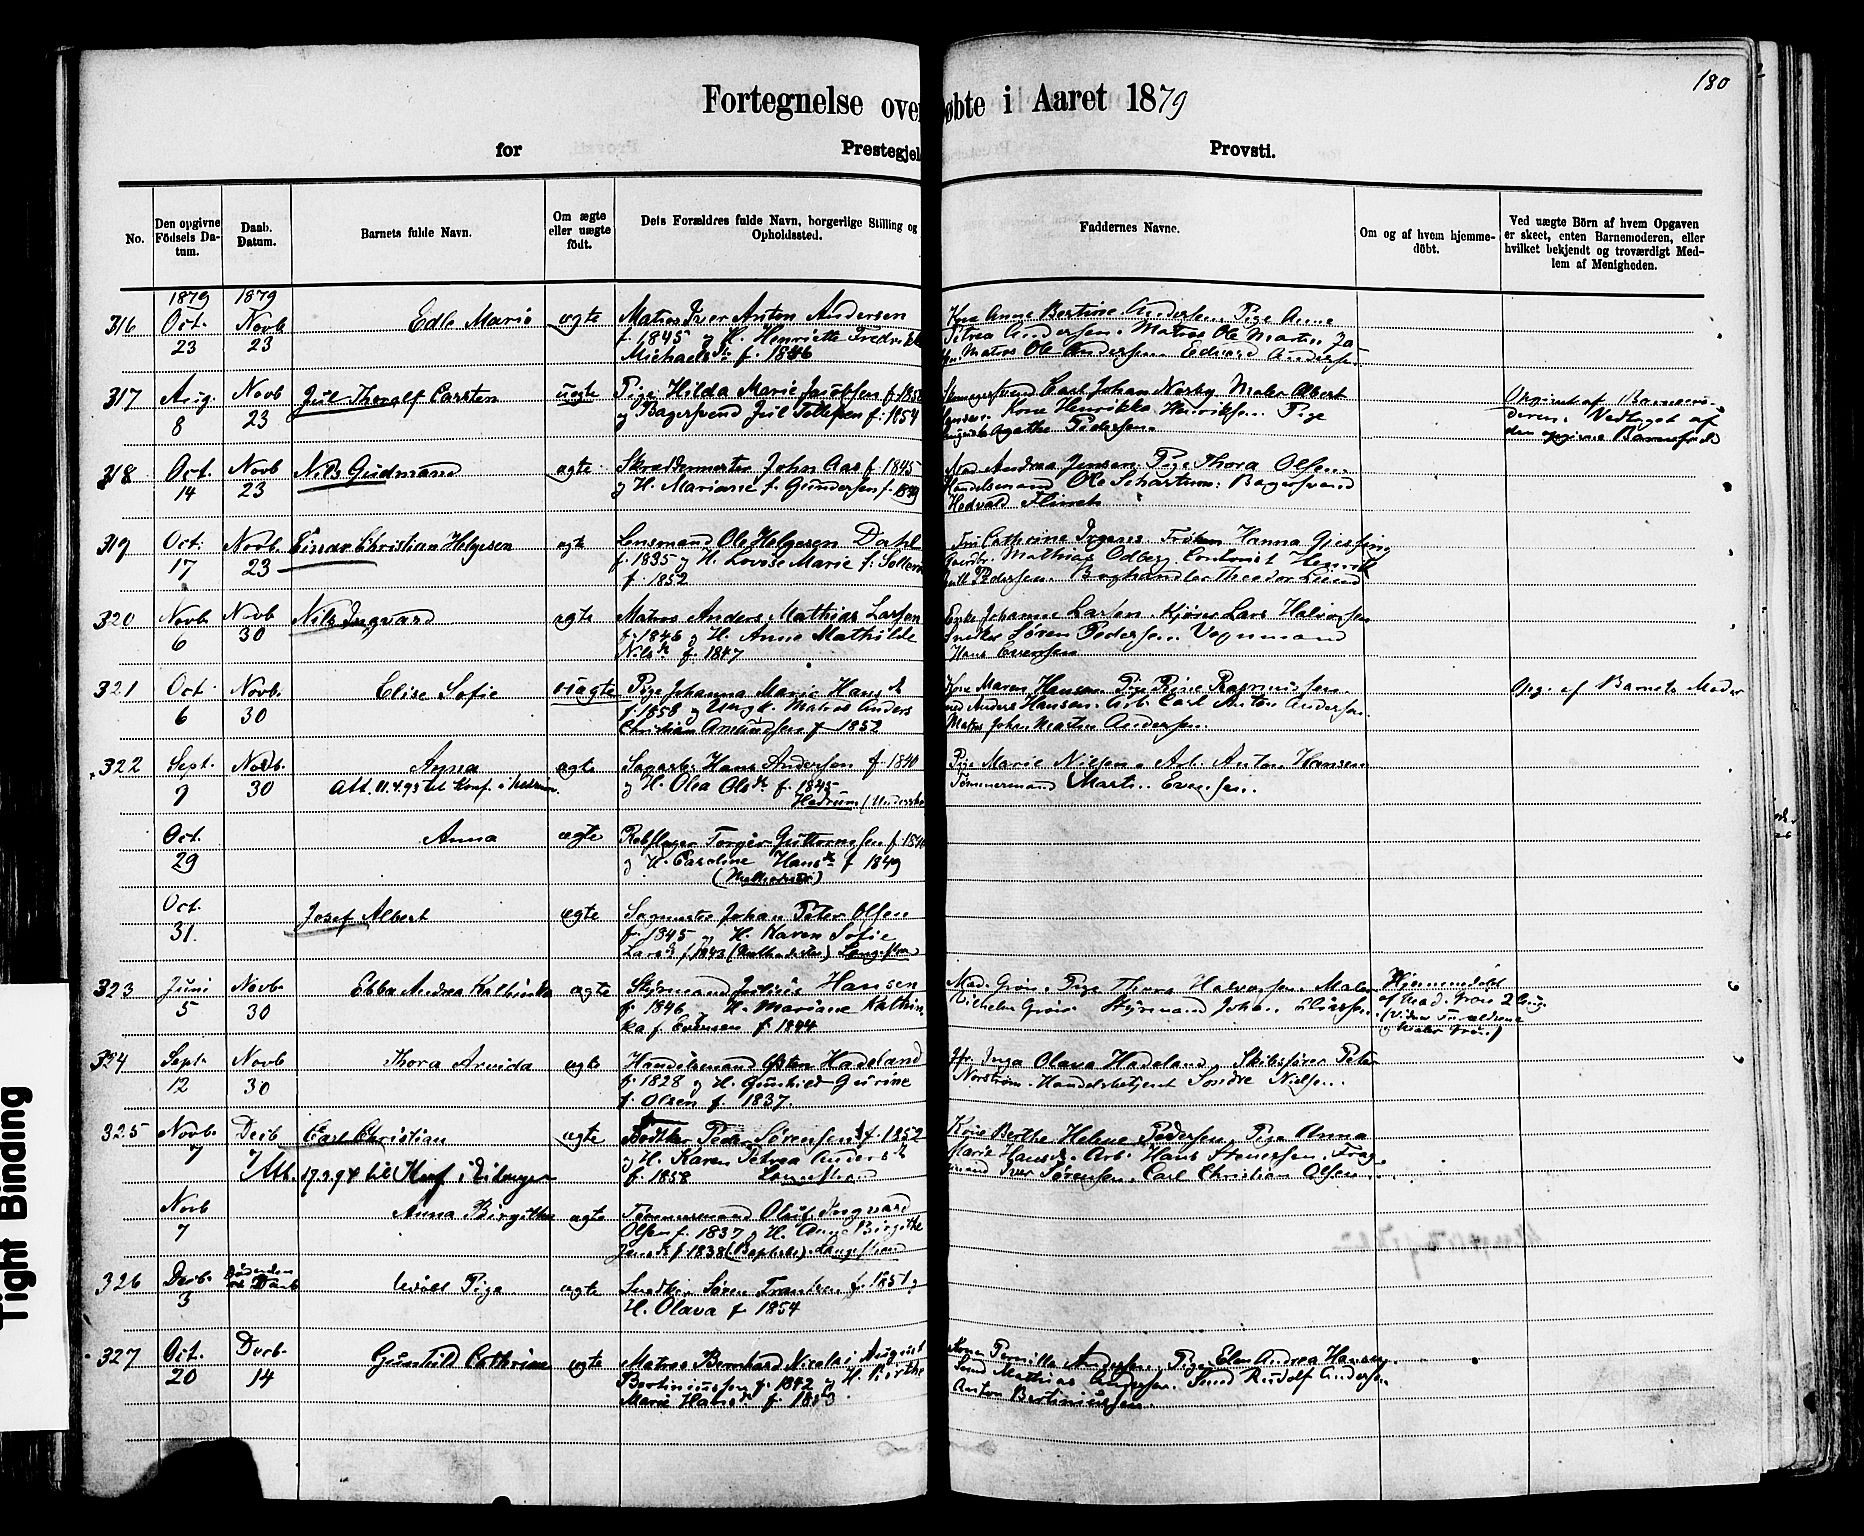 180
Fortegnelse over øbte i Aaret 1879
for Prestegjel Provsti.
No.
Den opgivne Födsels Datum.
Daab. Datum.
Barnets fulde Navn.
Om ægte eller uægte födt.
Dets Forældres fulde Navn, borgerlige Stilling og Opholdssted.
Faddernes Navne.
Om og af hvem hjemmedöbt.
Ved uægte Börn af hvem Opgaven er skeet, enten Barnemoderen, eller hvilket bekjendt og troværdigt Medlem af Menigheden.
1879 1879
316 Oct. 23 Novb 23 Edle Marie ægte
Matros Iver Anton Andersen
f. 1845 og H. Henriette Fredrikke
Michaelsdr f. 1846
Kone Anne Bertine Andersen Pige Anne
Petrea Andersen. Matros Ole Martin
Matros Ole Andersen Edvard Andersen
317 Aug. 8 Novb 23 Jul Thoralf Carsten uægte
Pige Hilda Marie Jacobsen f.
og Bagersvend Jul Tollefsen f. 1854
Carl Johan Norby Maler Albert
Kone Henrikke Henriksen. Pige
Agathe Pedersen.
Opgivet af Barnemoderen. Vedtaget af
den opgivne Barnefader
318 Oct. 14 Novb 23 Nils Gudmund ægte
Skreddermester John Aas f. 1845
og H. Mariane f. Gundersen f. 1849
Mad. Andrea Jensen. Pige Thora Olsen.
Handelsmand Ole Schartum. Bagersvend
Hedvald Flinch
319 Oct. 17 Novb. 23 Einar Christian Helgesen ægte
Lensmand Ole Helgesen Dahl
f. 1835 og H. Lovise Marie f.
f. 1852
Fru Cathrine Frøken Hanna Giessing
Mathias Odberg Contorist Henrik
Pedersen. Boghandler Theodor Lund
320 Novb. 6 Novb 30 Nils Ingvard ægte
Matros Anders Mathias Larsen
f. 1846 og H. Anne Mathilde
Nilsdr f. 1847
Enke Johanne Larsen. Kjører Lars Halvorsen
Snedker Søren Pedersen. Vognmand
Hans Evensen
321 Oct. 6 Novb. 30 Elise Sofie uægte
Pige Johanna Marie Hansdr
f. 1858 og Ungk. Matros Anders
Christian Amundsen f. 1852
Kone Maren Hansen Pige Rine Rasmussen.
Anders Hansen. Arb. Carl Anton Andersen.
Matros Johan Martin Andersen.
Opg. af Barnets Moder
322 Sept. 7 Novb. 30 Anna ægte
Att. 11.4.95 til Konf. i Hedrum.
Sagarb. Hans Andersen f. 1840
og H. Olea Olsdr f. 1845
Hedrum
Pige Marie Nielsen. Arb. Anton Hansen
Tømmermand Martin Evensen.
Oct. 29 Anna ægte
Rebslager Torger Guttormsen f. 1840
og H. Caroline Hansdr f. 1849
(Methodister)
Oct. 31. Josef Albert ægte
Sagmester Johan Peter Olsen
f. 1845 og H. Karen Sofie
Larsd f. 1843 (Methodister) Langestrand
323 Juni 5 Novb 30 Ebba Andrea Kathinka ægte
Styrmand Julius Hansen
f. 1846 og H. Mariane Kathinka
f. Evensen f. 1844
Mad. Grøn. Pige Thora Halvorsen. Maler
Vilhelm Grøn. Styrmand Johan Eliassen
Hjemmedöbt
af Mad. Grøn 2 Aug.
(Vidner Forældrene
og Maler Grøn)
324 Sept. 12 Novb 30 Thora Arvida ægte
Handelsmand Østen Hadeland
f. 1828 og H. Gunhild Gurine
f. Olsen f. 1837.
Jfr. Inga Olava Hadeland. Skibsfører Peter
Nordstrøm. Handelsbetjent Søndre Nielsen.
325 Novb. 7 Decb 7 Carl Christian ægte
Att. 17.3.94 til Konf. i Eidanger
Bødker Peder Sørensen f. 1852
og H. Karen Petrea Andersdr
f. 1858 Langestrand
Kone Berthe Helene Pedersen, Pige Anna
Marie Hansdr. Arb. Hans Stenersen.
Iver Sørensen. Carl Christian Olsen.
Novb 7 Anna Birgithe ægte
Tømmermand Oluf Ingvard
Olsen f. 1837 og H. Anne Birgithe
Jensdr f. 1838 (Baptister). Langestrand
326 Decb. 3 Död uden Daab Uvött Pige ægte
Snedker Søren Frantsen f. 1851 og
H. Olava f. 1854
327 Oct. 20 Decb. 14 Gunhild Cathrine ægte
Matros Bernhard Nicolai August
Bertiniussen f. 1842 og H. Berthe
Marie Hansdr f. 1853
Kone Pernille Andersen. Pige Elen Andrea Hansen.
Mathias Andersen. Rudolf Andersen
Anton Bertiniussen.
Tight Binding